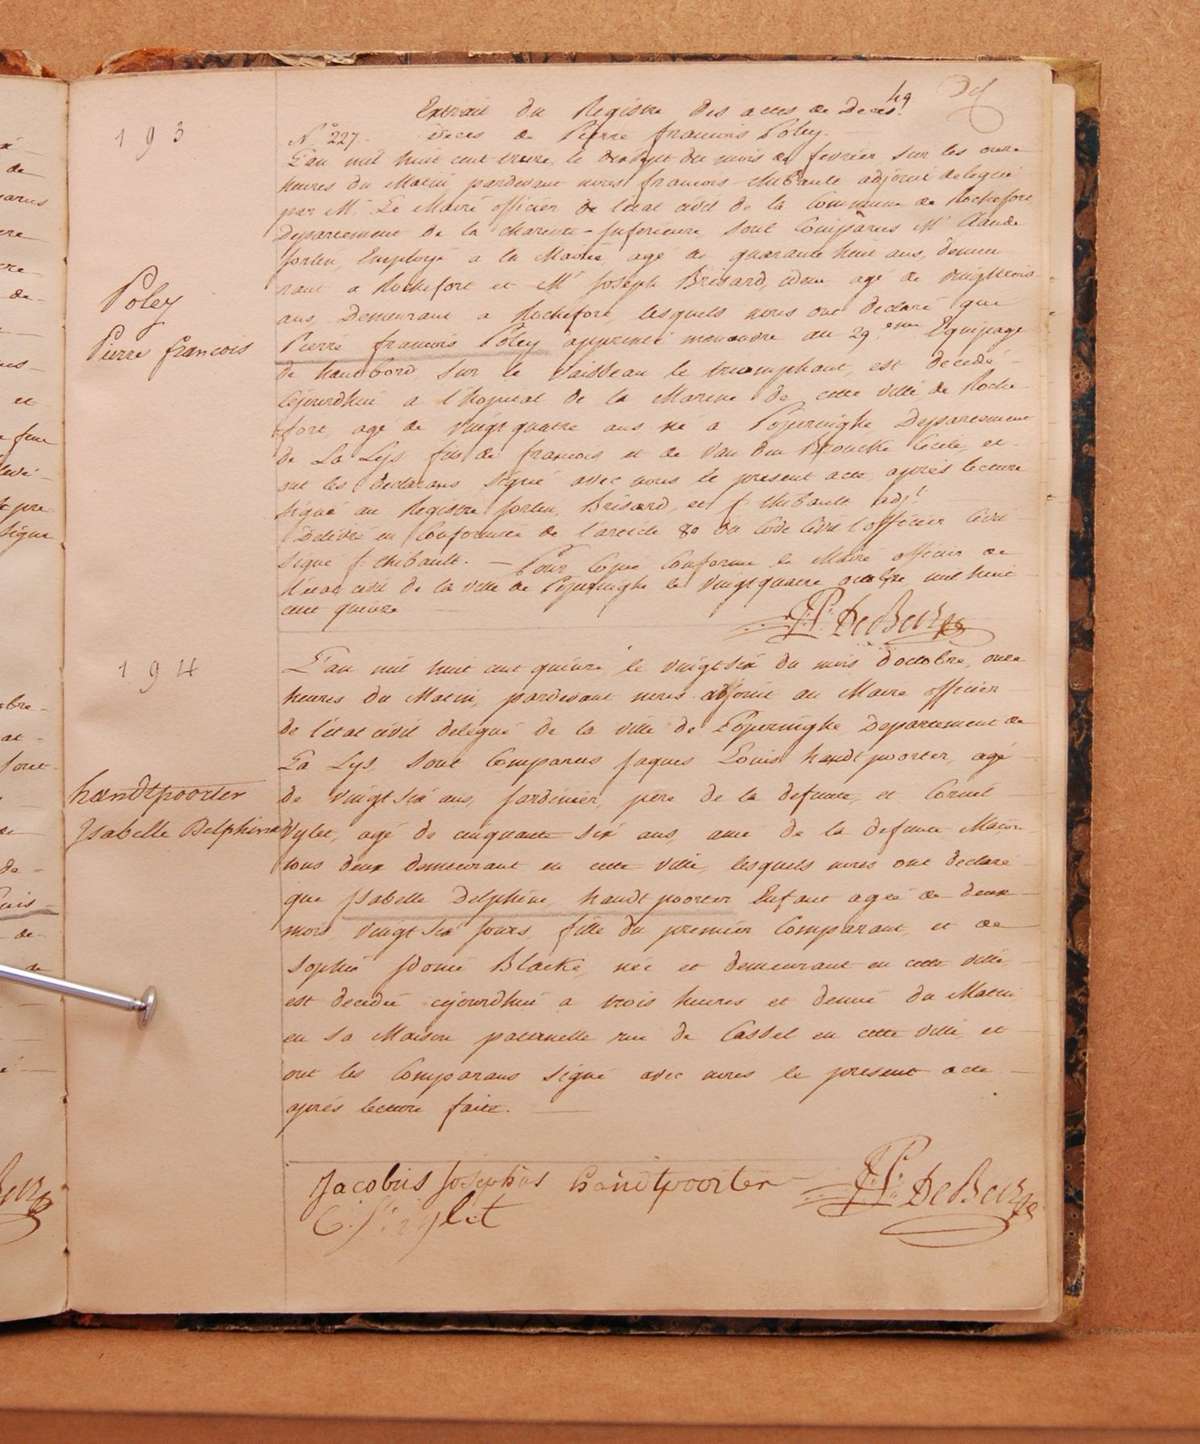 49
193
Extrait du Registre des actes de Deces.
N° 227. Deces de Pierre francois Poley.
L'an mil huit cent treize, le dixsept du mois de fevrier sur les onze
heures du Matin pardevant nous francois thibault adjoint delegué
par Mr Le Maire officier de l'état civil de la Commune de Rochefort
Departement de la charente-Inferieure sont Comparus Mr Claude
fortin, Employé a la Mairie, agé de quarante huit ans, demeu
rant a Rochefort et Mr Joseph Brisard, idem agé de vingttrois
ans, Demeurant a Rochefort, lesquels nous ont Declaré que
Poley
Pierre francois
Pierre francois Poley apprenti au 29.eme Equipage
de hautbord sur le Vaisseau le triomphant, est decedé
cejourdhui a l'hopital de la Marine de cette ville de Roche
fort, agé de vingt quatre ans né a Poperinghe Departement
de La Lys fils de francois et de Van den Broucke Cecile, et
ont les declarans signé avec nous le present acte après lecture
signé au Registre fortin, Brisard, et f thibault adjt
Delivré en Conformité de l'article 80 du Code Civil l'officier Civil
signé f thibault. — Pour Copie Conforme le Maire officier de
l'état civil de la ville de Poperinghe le vingtquatre octobre mil huit
cent quinze
DeBeir
194
L'an mil huit cent quinze, le vingtsix du mois d'octobre, onze
heures du Matin, pardevant nous adjoint au Maire officier
de l'état civil delegué de la ville de Poperinghe Departement de
La Lys, sont Comparus Jaques Louis handtpoorter, agé
handtpoorter
Isabelle Delphine
de vingt six ans, Jardinier, père de la defunte, et Cornel
agé de cinquante six ans, ami de la defunte Maçon
tous deux demeurant en cette ville, lesquels nous ont declaré
que Isabelle Delphine handtpoorter Enfant agée de deux
mois vingt six jours, fille du premier Comparant, et de
Sophie Idonie Blacke, née et demeurant en cette ville
est decedée cejourdhui a trois heures et demie du Matin
en sa Maison paternelle rue de Cassel en cette ville, et
ont les Comparans signé avec nous le present acte
après lecture faite.
Jacobus Josephus handtpoorter
DeBeir